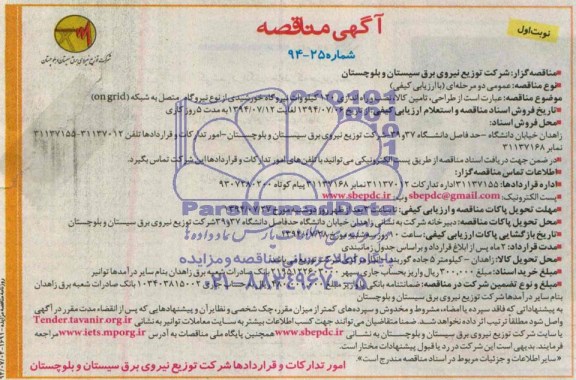 آگهی مناقصه
نوبت اول
شماره ۲۵-۹۴
شرکت توزیع نیروی برق سیستان و بلوچستان
مناقصه‌گزار: شرکت توزیع نیروی برق سیستان و بلوچستان
نوع مناقصه: عمومی دو مرحله‌ای (با ارزیابی کیفی)
موضوع مناقصه: عبارت است از طراحی، تامین کالا، نیروگاه خورشیدی از نوع نیروگاه متصل به شبکه (on grid)
تاریخ فروش اسناد مناقصه و استعلام ارزیابی کیفی: لغایت ۱۳۹۴/۰۷/۱۲ به مدت ۵ روز کاری
محل فروش اسناد:
زاهدان خیابان دانشگاه - حد فاصل دانشگاه ۳۷ و ۳۹ - شرکت توزیع نیروی برق سیستان و بلوچستان - امور تدارکات و قراردادها تلفن ۳۱۱۳۷۰۱۲-۳۱۱۳۷۱۵۵
نمابر ۳۱۱۳۷۱۶۸
در ضمن جهت دریافت اسناد مناقصه از طریق پست الکترونیکی می‌توانید با تلفن‌های امور تدارکات و قراردادها این شرکت تماس بگیرد.
اطلاعات تماس مناقصه‌گزار:
اداره قراردادها: ۳۱۱۳۷۱۵۵ اداره تدارکات ۳۱۱۳۷۰۱۲ نمابر ۳۱۱۳۷۱۶۸ پیام کوتاه
پست الکترونیک: sbepdc@gmail.com وب www.sbepdc.ir
مهلت تحویل پاکات مناقصه و ارزیابی کیفی:
محل تحویل پاکات مناقصه: دبیرخانه شرکت به نشانی زاهدان خیابان دانشگاه حدفاصل دانشگاه ۳۷ و ۳۹ شرکت توزیع نیروی برق سیستان و بلوچستان
تاریخ بازگشایی پاکات ارزیابی کیفی: ساعت ۱۰
مدت قرارداد: ۲ ماه پس از ابلاغ قرارداد و براساس جدول زمانبندی
محل تحویل کالا: زاهدان - کیلومتر ۵ جاده
مبلغ خرید اسناد: ۳۰۰,۰۰۰ ریال واریز بحساب جاری سپهر بانک صادرات شعبه برق زاهدان بنام سایر درآمدها توانیر
مبلغ و نوع تضمین شرکت در مناقصه: ضمانتنامه بانکی بانک صادرات شعبه برق زاهدان
بنام سایر درآمدها شرکت توزیع نیروی برق سیستان و بلوچستان
به پیشنهاداتی که فاقد سپرده یا امضاء، مشروط و مخدوش و سپرده‌های کمتر از میزان مقرر، چک شخصی و نظایر آن و پیشنهادهایی که پس از انقضاء مدت مقرر در آگهی
واصل شود مطلقا ترتیب اثر داده نخواهد شد. ضمنا متقاضیان می‌توانند جهت کسب اطلاعات بیشتر به سایت معاملات توانیر به نشانی Tender.tavanir.org.ir
یا سایت شرکت توزیع برق سیستان و بلوچستان به نشانی www.sbepdc.ir همچنین پایگاه ملی مناقصات به آدرس www.iets.mporg.ir مراجعه
فرمایند. بدیهی است این شرکت در رد یا قبول پیشنهادات مختار است.
«سایر اطلاعات و جزئیات مربوط در اسناد مناقصه مندرج است».
امور تدارکات و قراردادها شرکت توزیع نیروی برق سیستان و بلوچستان
ParsNamadData
پایگاه اطلاع رسانی مناقصه و مزایده
۰۲۱-۸۸۳۴۹۶۷۰-۵